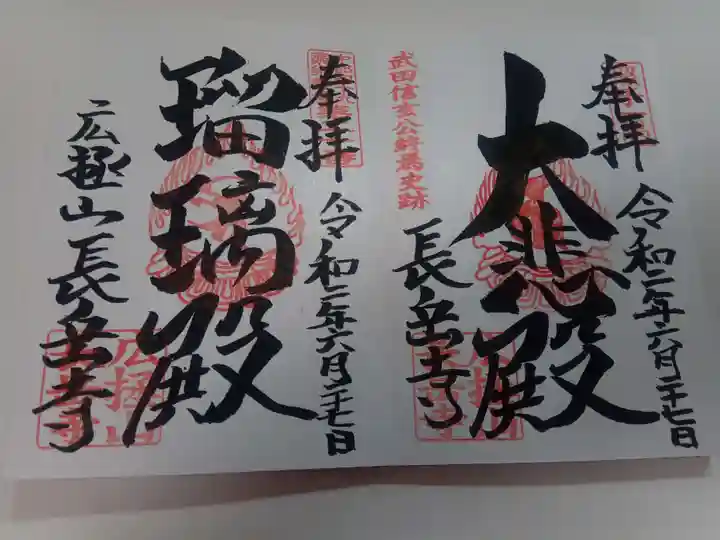 奉拝
令和二年六月二十七日
大悲殿
武田信玄公終焉史跡
長岳寺
奉拝
令和二年六月二十七日
瑠璃殿
広拯山長岳寺